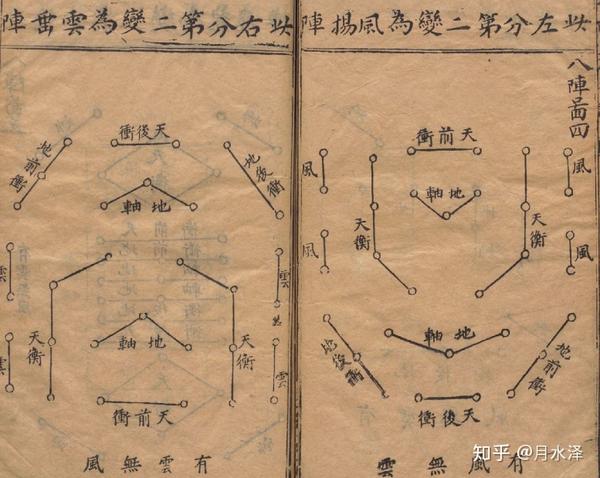 此左分第二變為風揚陣
八陣啚四
天前衝
風
風
地軸
天衡
天衡
風
風
地軸
地前衝
地後衝
天後衝
有風無雲
此右分第二變為雲垂陣
天後衝
地後衝
地前衝
地軸
雲
雲
地軸
天衡
天衡
雲
雲
天前衝
有雲無風
知乎 @月水泽